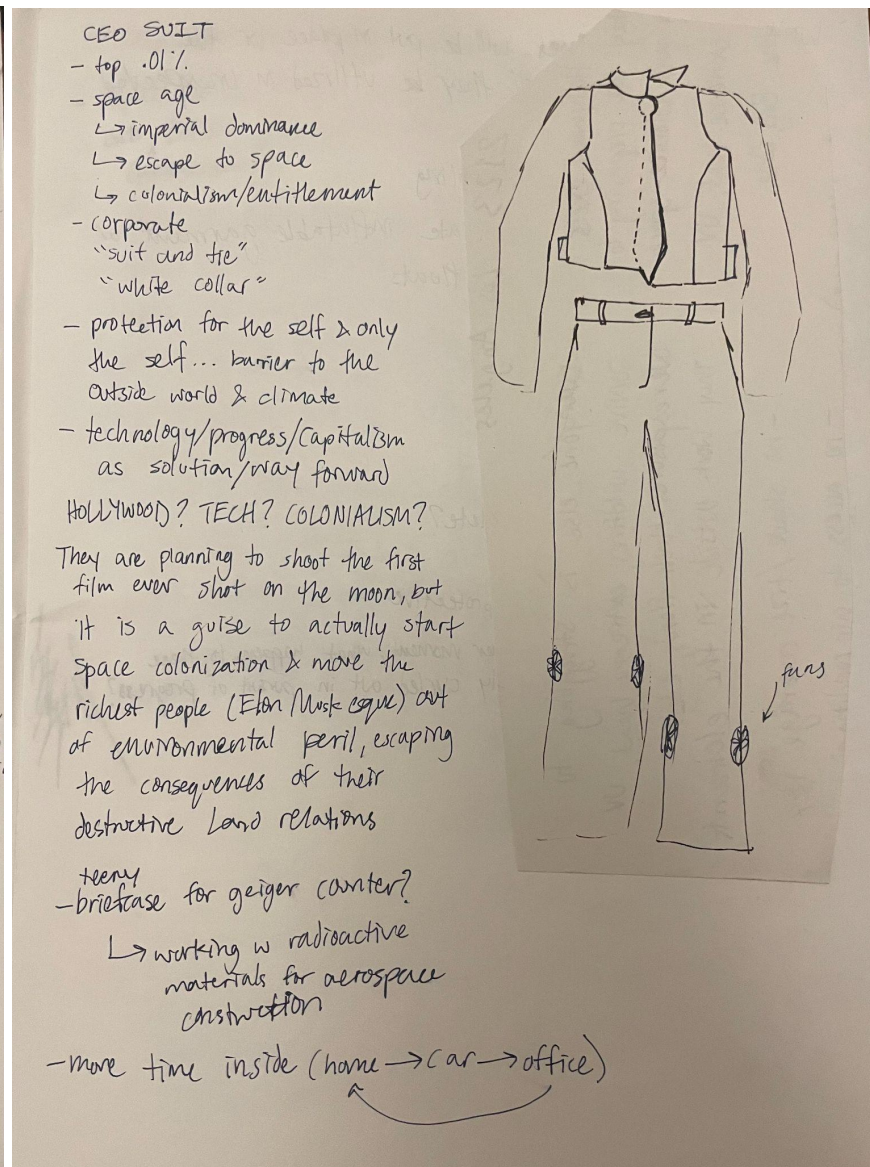 CEO SUIT
- top .01%
- space age
↳ imperial dominance
↳ escape to space
↳ colonialism/entitlement
- corporate
"suit and tie"
"white collar"
- protection for the self & only
the self... barrier to the
outside world & climate
- technology/progress/capitalism
as solution/way forward
HOLLYWOOD? TECH? COLONIALISM?
They are planning to shoot the first
film ever shot on the moon, but
it is a guise to actually start
space colonization & move the
richest people (Elon Musk esque) out
of environmental peril, escaping
the consequences of their
destructive Land relations
fans
teeny
- briefcase for geiger counter?
↳ working w radioactive
materials for aerospace
construction
- more time inside (home → car → office)